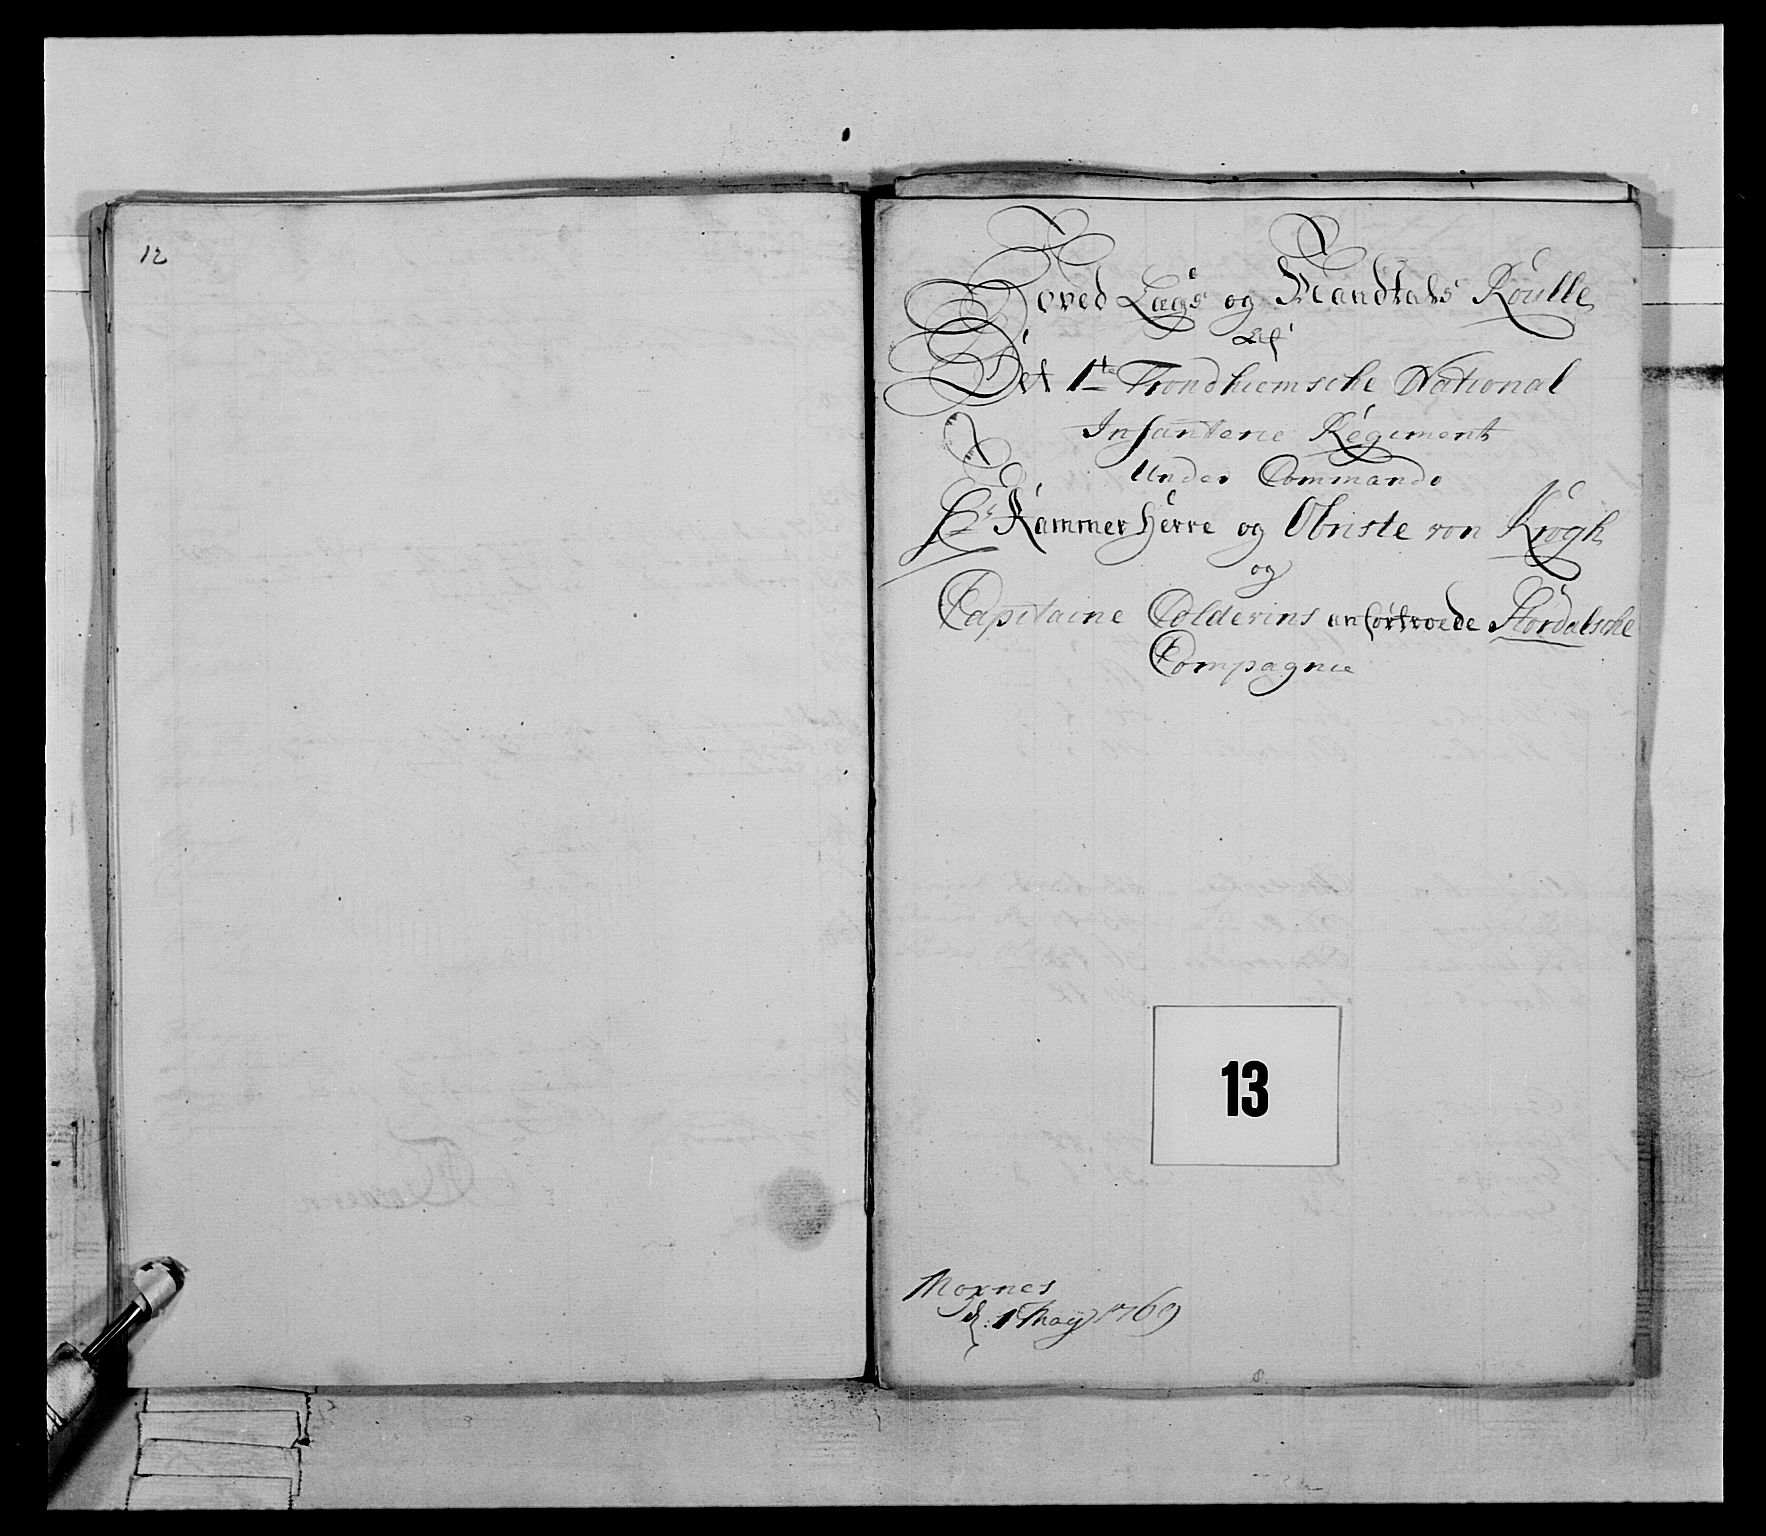 12
Hoved Lægs og Mandtals Roulle
Af
Det 1te Trondhiemsche National
Infanterie Regiment
Under Commando
Hr Kammer Herre og Obriste von Krogh
og
Capitaine Colderins anfortroede Stördalsche
Compagnie
13
Moxnes
d: 1 May 1769
8